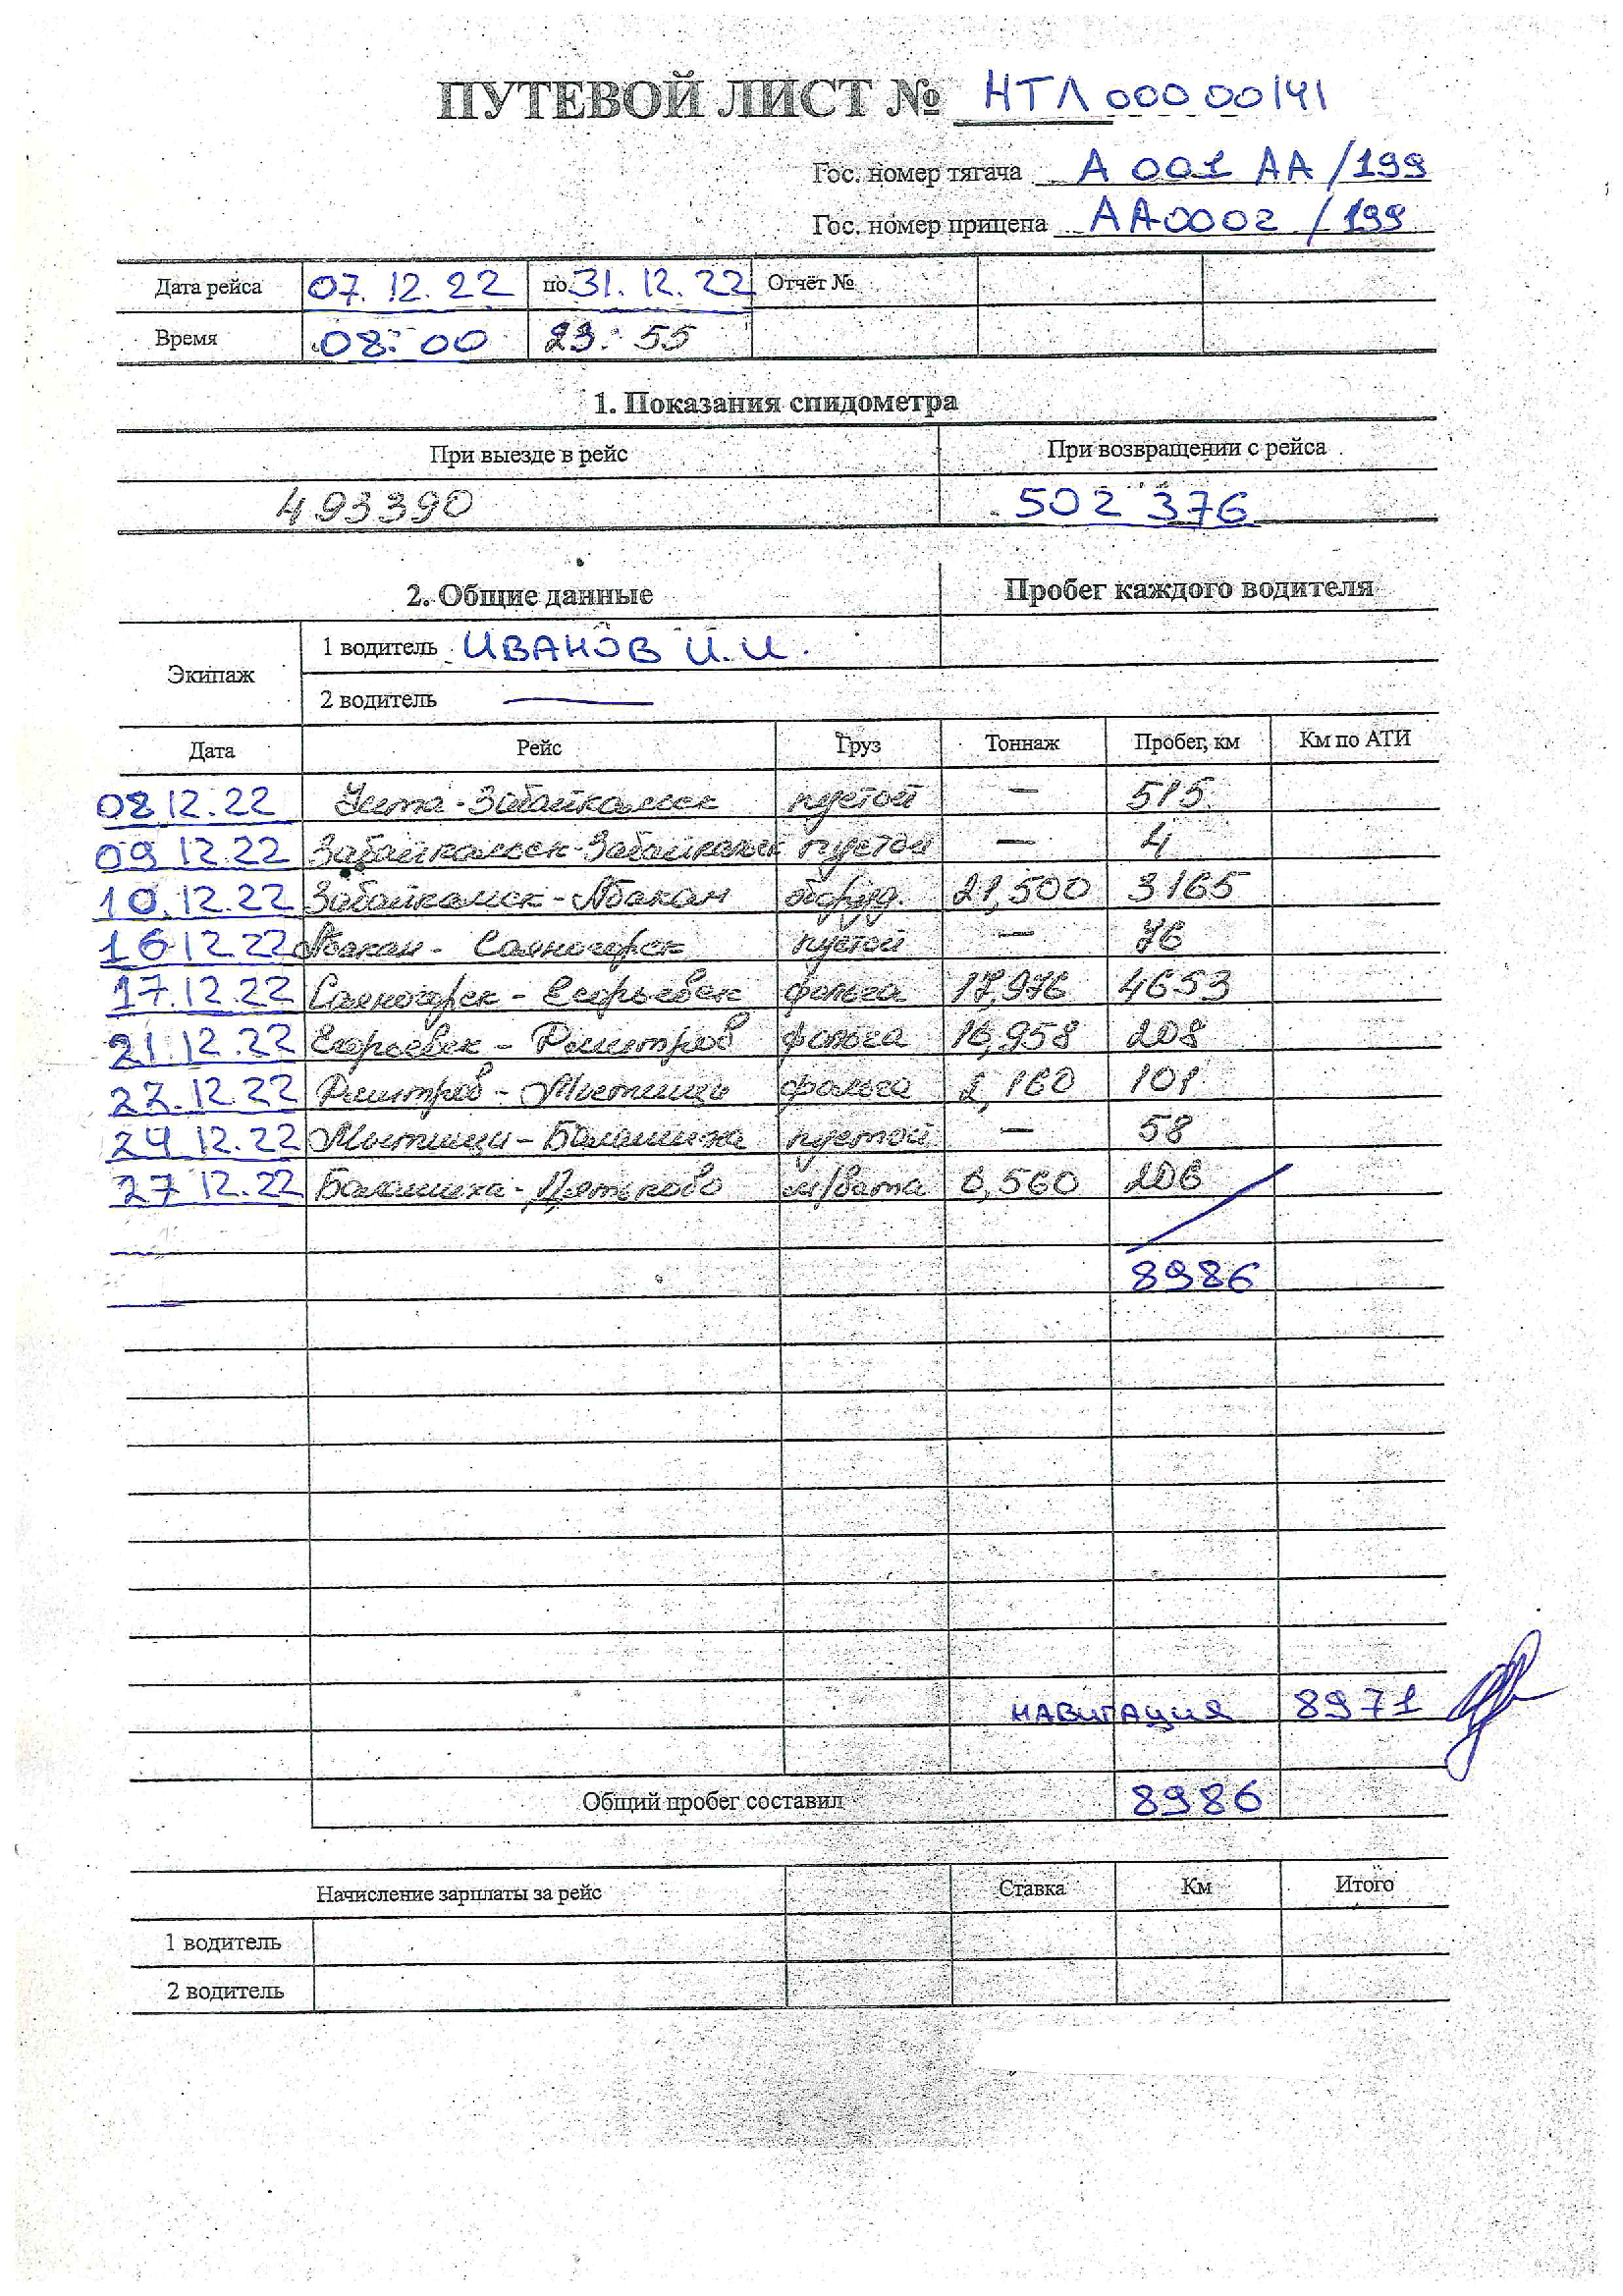 ПУТЕВОЙ ЛИСТ № НТЛ 000 00141
Гос. номер тягача А 001 АА /199
Гос. номер прицепа АА0002 /199
Дата рейса 07.12.22 по 31.12.22 Отчёт №
Время 08:00 23:55
1. Показания спидометра
При выезде в рейс При возвращении с рейса
493390 502 376
2. Общие данные Пробег каждого водителя
Экипаж 1 водитель ИВАНОВ И.И.
2 водитель —
Дата Рейс Груз Тоннаж Пробег, км Км по АТИ
08.12.22 Чита - Забайкальск пустой — 515
09.12.22 Забайкальск - Забайкальск пустой — 4
10.12.22 Забайкальск - Абакан оборуд. 21,500 3165
16.12.22 Абакан - Саяногорск пустой — 76
17.12.22 Саяногорск - Егорьевск фольга 17,976 4653
21.12.22 Егорьевск - Дмитров фольга 16,958 208
22.12.22 Дмитров - Мытищи фольга 2,160 101
24.12.22 Мытищи - Балашиха пустой — 58
27.12.22 Балашиха - Дятьково м/вата 6,560 206
8986
НАВИГАЦИЯ 8971
Общий пробег составил 8986
Начисление зарплаты за рейс Ставка Км Итого
1 водитель
2 водитель